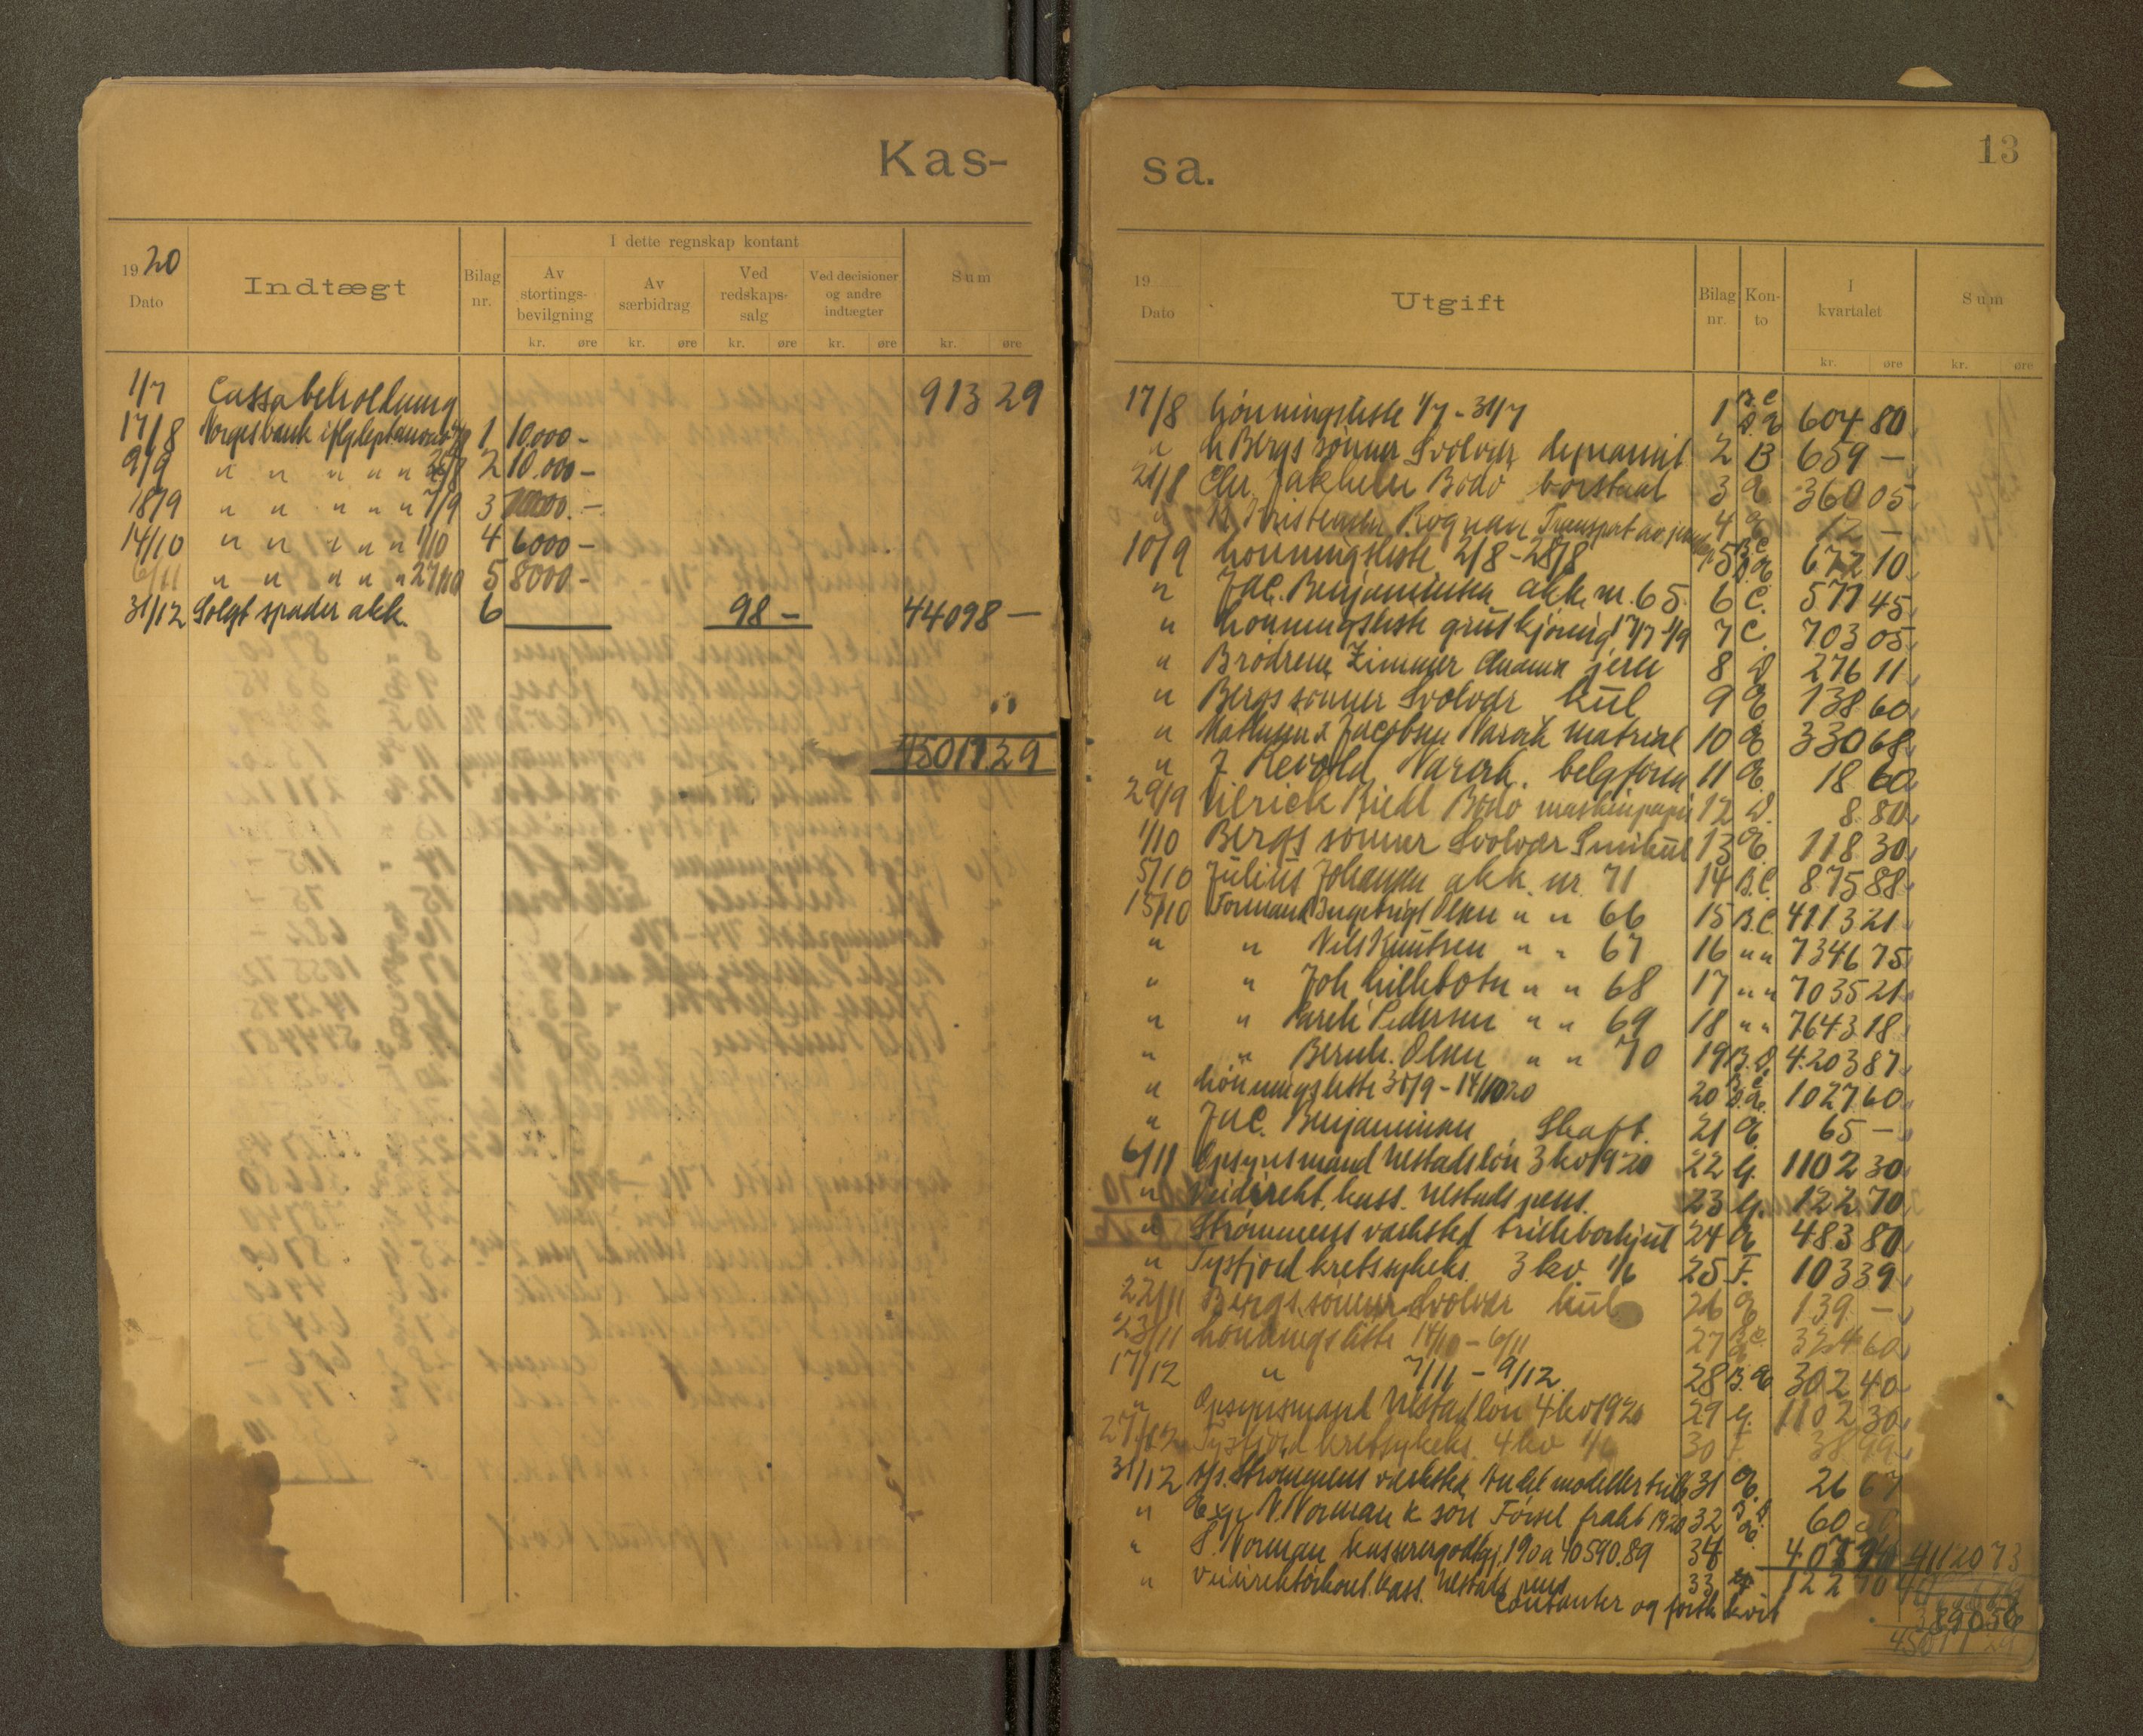 Kas-
I dette regnskap kontant
1920
Dato
Indtægt
Bilag nr.
Av stortings-bevilgning
Av særbidrag
Ved redskaps-salg
Ved decisioner og andre indtægter
Sum
kr. øre kr. øre kr. øre kr. øre kr. øre
1/7 Cassabeholdning 913 29
17/8 Norges bank 1 10.000 -
9/9 " " " " " 26/8 2 10.000 -
18/9 " " " " " 7/9 3 10000. -
14/10 " " " " " 1/10 4 6000 -
6/11 " " " " " 27/10 5 8000 -
31/12 Solgt spader akk. 6 98 - 44098 -
45011.29
sa.
13
19
Dato
Utgift
Bilag nr.
Kon-to
I kvartalet
Sum
kr. øre kr. øre
17/8 Lønningsliste 1/7 - 31/7 1 B.C. D.E 604 80
" L Bergs sønner Svolvær dynamit 2 B 659 -
21/8 Chr. Jakhelln Bodø borstaal 3 E 360 05
" Kristensen Rognan Transport av jern 4 E 12 -
10/9 Lønningsliste 2/8 - 28/8 5 B.C. D.E. 672 10
" Jac. Benjaminsen akk. nr. 65 6 C. 577 45
" Lønningsliste gruskjøring 17/7 - 1/9 7 C. 703 05
" Brødrene Zimmer jern 8 D 276 11
" Bergs sønner Svolvær kul 9 E 138 60
" Mathisen & Jacobsen Narvik matrial 10 E 330 68
" J Narvik. belgform 11 E 18 60
29/9 Ulrick Bodø maskinpapir 12 D. 8 80
1/10 Bergs sønner Svolvær Smikul 13 E 118 30
5/10 Julius Johansen akk. nr. 71 14 B.C. 875 88
15/10 Formand Ingebrigt Olsen " " 66 15 B.C. 4113 21
" " Nils Knutsen " " 67 16 " " 7346 75
" " Joh Lillebotn " " 68 17 " " 7035 21
" " Pareli Pedersen " " 69 18 " " 7643 18
" " Bernh. Olsen " " 70 19 B.D. 4203 87
" Lønningsliste 30/9 - 14/10 20 20 B.C. D.E. 1027 60
" Jac. Benjaminsen Skaft. 21 E. 65 -
6/11 Opsynsmand Ulstads løn 3 kv 1920 22 G. 1102 30
" Veidirekt. kass. Ulstads pens. 23 G. 122 70
" Strømmens værksted trilleborhjul 24 E 483 80
" Tysfjord kretssykeks. 3 kv. 1/6 25 F. 103 39
22/11 Bergs sønner Svolvær kul 26 E 139 -
23/11 Lønningsliste 14/10 - 6/11 27 B.C. E 324 60
17/12 " 7/11 - 9/12 28 B.E 302 40
" Opsynsmand Ulstad løn 4 kv 1920 29 G. 1102 30
27/12 Tysfjord kretssykeks. 4 kv 1/6 30 F. 38 99
31/12 A/s. Strømmens værksted 31 E. 26 67
" Exp. N. Norman & søn Førsel frakt 1920 32 60
" S. Norman kasserergodtgj. 1% a 40590.89 34 41120 73
" Veidirektørkont. kass. Ulstads pens 33 122 70
Contanter og forsk. kvit 3890 56
45011 29